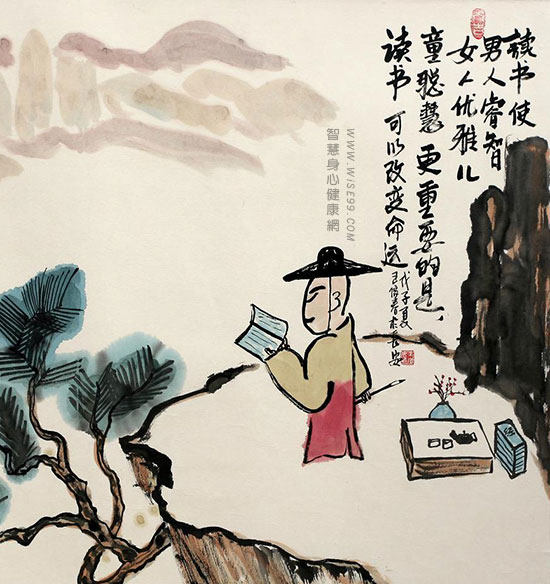 读书使
男人睿智
女人优雅儿
童聪慧 更重要的是,
读书 可以改变命运
戊子夏
WWW.WiSE99.COM
智慧身心健康網